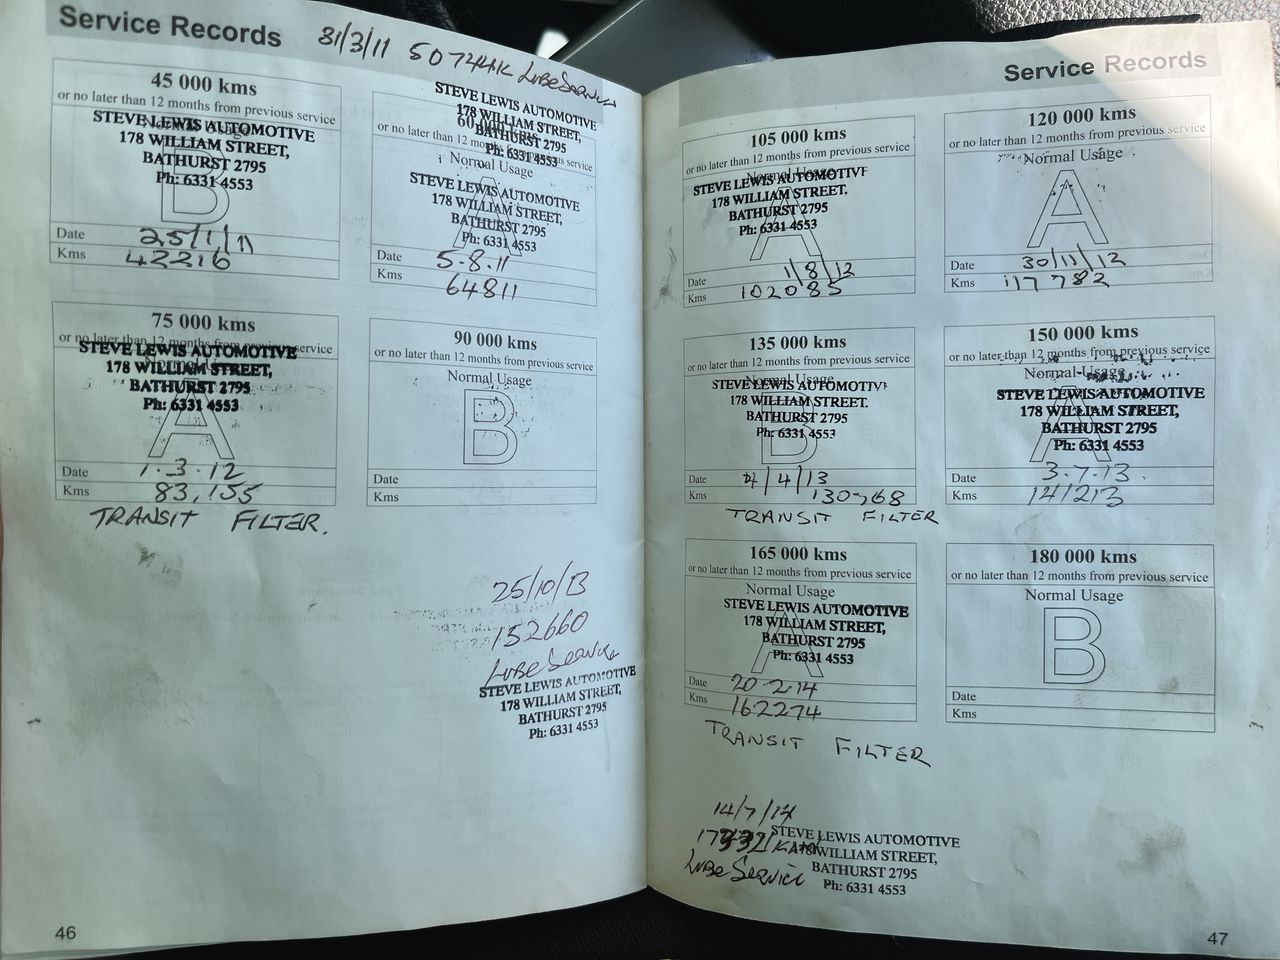 Service Records
31/3/11 50744K LUBE SERVICE
45 000 kms
or no later than 12 months from previous service
Normal Usage
STEVE LEWIS AUTOMOTIVE
178 WILLIAM STREET,
BATHURST 2795
Ph: 6331 4553
B
Date 25/1/11
Kms 42216
STEVE LEWIS AUTOMOTIVE
178 WILLIAM STREET,
BATHURST 2795
Ph: 6331 4553
60 000 kms
or no later than 12 months from previous service
Normal Usage
STEVE LEWIS AUTOMOTIVE
178 WILLIAM STREET,
BATHURST 2795
Ph: 6331 4553
A
Date 5.8.11
Kms 64811
75 000 kms
or no later than 12 months from previous service
STEVE LEWIS AUTOMOTIVE
Normal
178 WILLIAM STREET,
BATHURST 2795
Ph: 6331 4553
A
Date 1.3.12
Kms 83,155
TRANSIT FILTER.
90 000 kms
or no later than 12 months from previous service
Normal Usage
B
Date
Kms
25/10/13
152660
LUBE SERVICE
STEVE LEWIS AUTOMOTIVE
178 WILLIAM STREET,
BATHURST 2795
Ph: 6331 4553
46
Service Records
105 000 kms
or no later than 12 months from previous service
Normal Usage
STEVE LEWIS AUTOMOTIVE
178 WILLIAM STREET.
BATHURST 2795
Ph: 6331 4553
A
Date 1/8/12
Kms 102085
120 000 kms
or no later than 12 months from previous service
Normal Usage
A
Date 30/11/12
Kms 117782
135 000 kms
or no later than 12 months from previous service
Normal Usage
STEVE LEWIS AUTOMOTIVE
178 WILLIAM STREET.
BATHURST 2795
Ph: 6331 4553
B
Date 4/4/13
Kms
TRANSIT FILTER
150 000 kms
or no later than 12 months from previous service
Normal Usage
STEVE LEWIS AUTOMOTIVE
178 WILLIAM STREET,
BATHURST 2795
Ph: 6331 4553
A
Date 3.7.13.
Kms 141213
165 000 kms
or no later than 12 months from previous service
Normal Usage
STEVE LEWIS AUTOMOTIVE
178 WILLIAM STREET,
BATHURST 2795
Ph: 6331 4553
A
Date 20.2.14
Kms 162274
TRANSIT FILTER
180 000 kms
or no later than 12 months from previous service
Normal Usage
B
Date
Kms
14/7/14
LUBE SERVICE
STEVE LEWIS AUTOMOTIVE
178 WILLIAM STREET,
BATHURST 2795
Ph: 6331 4553
47